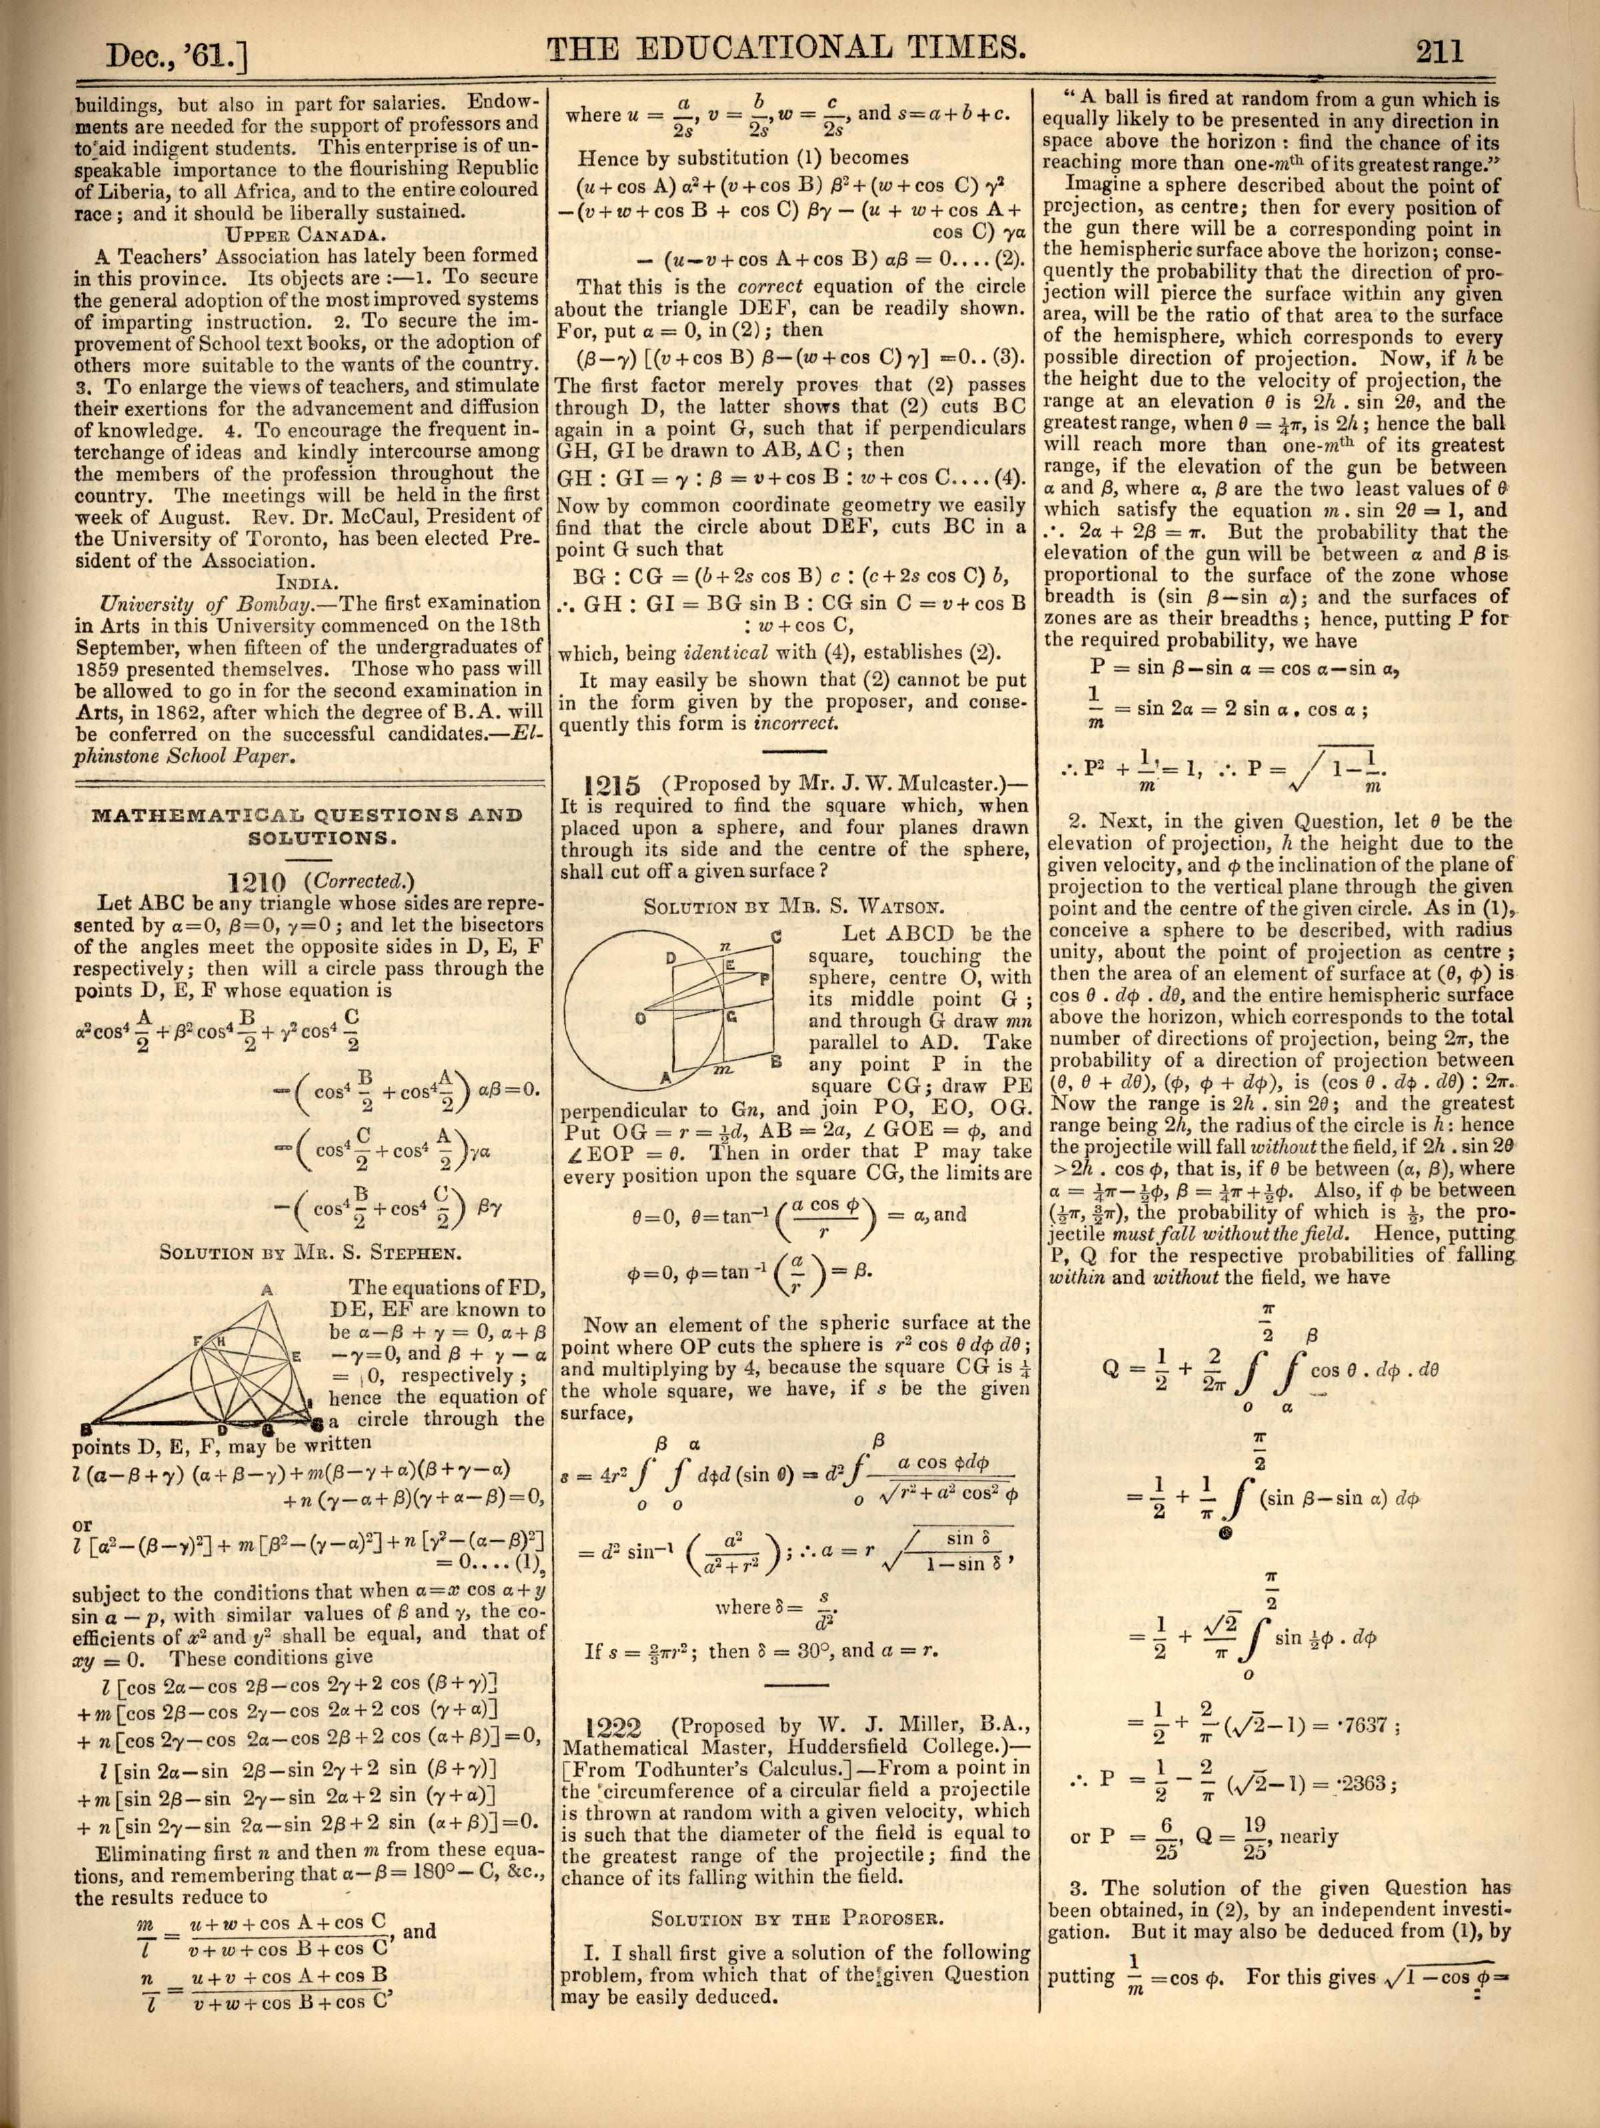 Dec., '61.]
THE EDUCATIONAL TIMES.
211
buildings, but also in part for salaries. Endow-
ments are needed for the support of professors and
to aid indigent students. This enterprise is of un-
speakable importance to the flourishing Republic
of Liberia, to all Africa, and to the entire coloured
race; and it should be liberally sustained.
UPPER CANADA.
A Teachers' Association has lately been formed
in this province. Its objects are :—1. To secure
the general adoption of the most improved systems
of imparting instruction. 2. To secure the im-
provement of School text books, or the adoption of
others more suitable to the wants of the country.
3. To enlarge the views of teachers, and stimulate
their exertions for the advancement and diffusion
of knowledge. 4. To encourage the frequent in-
terchange of ideas and kindly intercourse among
the members of the profession throughout the
country. The meetings will be held in the first
week of August. Rev. Dr. McCaul, President of
the University of Toronto, has been elected Pre-
sident of the Association.
INDIA.
University of Bombay.—The first examination
in Arts in this University commenced on the 18th
September, when fifteen of the undergraduates of
1859 presented themselves. Those who pass will
be allowed to go in for the second examination in
Arts, in 1862, after which the degree of B.A. will
be conferred on the successful candidates.—El-
phinstone School Paper.
MATHEMATICAL QUESTIONS AND
SOLUTIONS.
1210 (Corrected.)
Let ABC be any triangle whose sides are repre-
sented by α=0, β=0, γ=0; and let the bisectors
of the angles meet the opposite sides in D, E, F
respectively; then will a circle pass through the
points D, E, F whose equation is
α² cos⁴ A/2 + β² cos⁴ B/2 + γ² cos⁴ C/2
−( cos⁴ B/2 + cos⁴ A/2 ) αβ=0.
−( cos⁴ C/2 + cos⁴ A/2 ) γα
−( cos⁴ B/2 + cos⁴ C/2 ) βγ
SOLUTION BY MR. S. STEPHEN.
A
F H
E
B
D G
The equations of FD,
DE, EF are known to
be α−β + γ = 0, α+β
−γ=0, and β + γ − α
= 0, respectively;
hence the equation of
a circle through the
points D, E, F, may be written
l (α−β+γ) (α+β−γ)+m(β−γ+α)(β+γ−α)
+n (γ−α+β)(γ+α−β)=0,
or
l [α²−(β−γ)²]+ m [β²−(γ−α)²]+n [γ²−(α−β)²]
= 0.... (1),
subject to the conditions that when α=x cos α+y
sin α − p, with similar values of β and γ, the co-
efficients of x² and y² shall be equal, and that of
xy = 0. These conditions give
l [cos 2α−cos 2β−cos 2γ+2 cos (β+γ)]
+m [cos 2β−cos 2γ−cos 2α+2 cos (γ+α)]
+ n [cos 2γ−cos 2α−cos 2β+2 cos (α+β)]=0,
l [sin 2α−sin 2β−sin 2γ+2 sin (β+γ)]
+m [sin 2β−sin 2γ−sin 2α+2 sin (γ+α)]
+ n [sin 2γ−sin 2α−sin 2β+2 sin (α+β)]=0.
Eliminating first n and then m from these equa-
tions, and remembering that α−β= 180°− C, &c.,
the results reduce to
m/l = (u+w+cos A+cos C)/(v+w+cos B+cos C), and
n/l = (u+v+cos A+cos B)/(v+w+cos B+cos C),
where u = a/2s, v = b/2s, w = c/2s, and s=a+b+c.
Hence by substitution (1) becomes
(u+cos A) α²+(v+cos B) β²+(w+cos C) γ²
−(v+w+cos B + cos C) βγ − (u + w+cos A+
cos C) γα
− (u−v+cos A+cos B) αβ = 0.... (2).
That this is the correct equation of the circle
about the triangle DEF, can be readily shown.
For, put α = 0, in (2); then
(β−γ) [(v+cos B) β−(w+cos C) γ] =0.. (3).
The first factor merely proves that (2) passes
through D, the latter shows that (2) cuts BC
again in a point G, such that if perpendiculars
GH, GI be drawn to AB, AC; then
GH : GI = γ : β = v+cos B : w+cos C.... (4).
Now by common coordinate geometry we easily
find that the circle about DEF, cuts BC in a
point G such that
BG : CG = (b+2s cos B) c : (c+2s cos C) b,
∴ GH : GI = BG sin B : CG sin C = v+cos B
: w+cos C,
which, being identical with (4), establishes (2).
It may easily be shown that (2) cannot be put
in the form given by the proposer, and conse-
quently this form is incorrect.
1215 (Proposed by Mr. J. W. Mulcaster.)—
It is required to find the square which, when
placed upon a sphere, and four planes drawn
through its side and the centre of the sphere,
shall cut off a given surface?
SOLUTION BY MR. S. WATSON.
n C
D E
P
O G
m B
A
Let ABCD be the
square, touching the
sphere, centre O, with
its middle point G;
and through G draw mn
parallel to AD. Take
any point P in the
square CG; draw PE
perpendicular to Gn, and join PO, EO, OG.
Put OG = r = ½d, AB = 2a, ∠ GOE = φ, and
∠ EOP = θ. Then in order that P may take
every position upon the square CG, the limits are
θ=0, θ=tan⁻¹ (a cos φ / r) = α, and
φ=0, φ=tan⁻¹ (a/r) = β.
Now an element of the spheric surface at the
point where OP cuts the sphere is r² cos θ dφ dθ;
and multiplying by 4, because the square CG is ¼
the whole square, we have, if s be the given
surface,
s = 4r² ∫₀^β ∫₀^α dφd (sin θ) = d² ∫₀^β a cos φdφ / √(r²+a² cos² φ)
= d² sin⁻¹ (a²/(a²+r²)); ∴ a = r √(sin δ/(1−sin δ)),
where δ = s/d².
If s = ⅔πr²; then δ = 30°, and a = r.
1222 (Proposed by W. J. Miller, B.A.,
Mathematical Master, Huddersfield College.)—
[From Todhunter's Calculus.]—From a point in
the circumference of a circular field a projectile
is thrown at random with a given velocity, which
is such that the diameter of the field is equal to
the greatest range of the projectile; find the
chance of its falling within the field.
SOLUTION BY THE PROPOSER.
I. I shall first give a solution of the following
problem, from which that of the given Question
may be easily deduced.
"A ball is fired at random from a gun which is
equally likely to be presented in any direction in
space above the horizon: find the chance of its
reaching more than one-mᵗʰ of its greatest range."
Imagine a sphere described about the point of
projection, as centre; then for every position of
the gun there will be a corresponding point in
the hemispheric surface above the horizon; conse-
quently the probability that the direction of pro-
jection will pierce the surface within any given
area, will be the ratio of that area to the surface
of the hemisphere, which corresponds to every
possible direction of projection. Now, if h be
the height due to the velocity of projection, the
range at an elevation θ is 2h . sin 2θ, and the
greatest range, when θ = ¼π, is 2h; hence the ball
will reach more than one-mᵗʰ of its greatest
range, if the elevation of the gun be between
α and β, where α, β are the two least values of θ
which satisfy the equation m . sin 2θ = 1, and
∴ 2α + 2β = π. But the probability that the
elevation of the gun will be between α and β is
proportional to the surface of the zone whose
breadth is (sin β−sin α); and the surfaces of
zones are as their breadths; hence, putting P for
the required probability, we have
P = sin β−sin α = cos α−sin α,
1/m = sin 2α = 2 sin α . cos α;
∴ P² + 1/m = 1, ∴ P = √(1−1/m).
2. Next, in the given Question, let θ be the
elevation of projection, h the height due to the
given velocity, and φ the inclination of the plane of
projection to the vertical plane through the given
point and the centre of the given circle. As in (1),
conceive a sphere to be described, with radius
unity, about the point of projection as centre;
then the area of an element of surface at (θ, φ) is
cos θ . dφ . dθ, and the entire hemispheric surface
above the horizon, which corresponds to the total
number of directions of projection, being 2π, the
probability of a direction of projection between
(θ, θ + dθ), (φ, φ + dφ), is (cos θ . dφ . dθ) : 2π.
Now the range is 2h . sin 2θ; and the greatest
range being 2h, the radius of the circle is h: hence
the projectile will fall without the field, if 2h . sin 2θ
>2h . cos φ, that is, if θ be between (α, β), where
α = ¼π−½φ, β = ¼π+½φ. Also, if φ be between
(½π, 3/2π), the probability of which is ½, the pro-
jectile must fall without the field. Hence, putting
P, Q for the respective probabilities of falling
within and without the field, we have
Q = 1/2 + 2/2π ∫₀^(π/2) ∫_α^β cos θ . dφ . dθ
= 1/2 + 1/π ∫₀^(π/2) (sin β−sin α) dφ
= 1/2 + √2/π ∫₀^(π/2) sin ½φ . dφ
= 1/2 + 2/π (√2−1) = ·7637;
∴ P = 1/2 − 2/π (√2−1) = ·2363;
or P = 6/25, Q = 19/25, nearly
3. The solution of the given Question has
been obtained, in (2), by an independent investi-
gation. But it may also be deduced from (1), by
putting 1/m = cos φ. For this gives √(1−cos φ)=